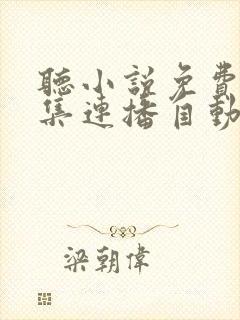 聽小說免費
集連播自動
梁朝偉